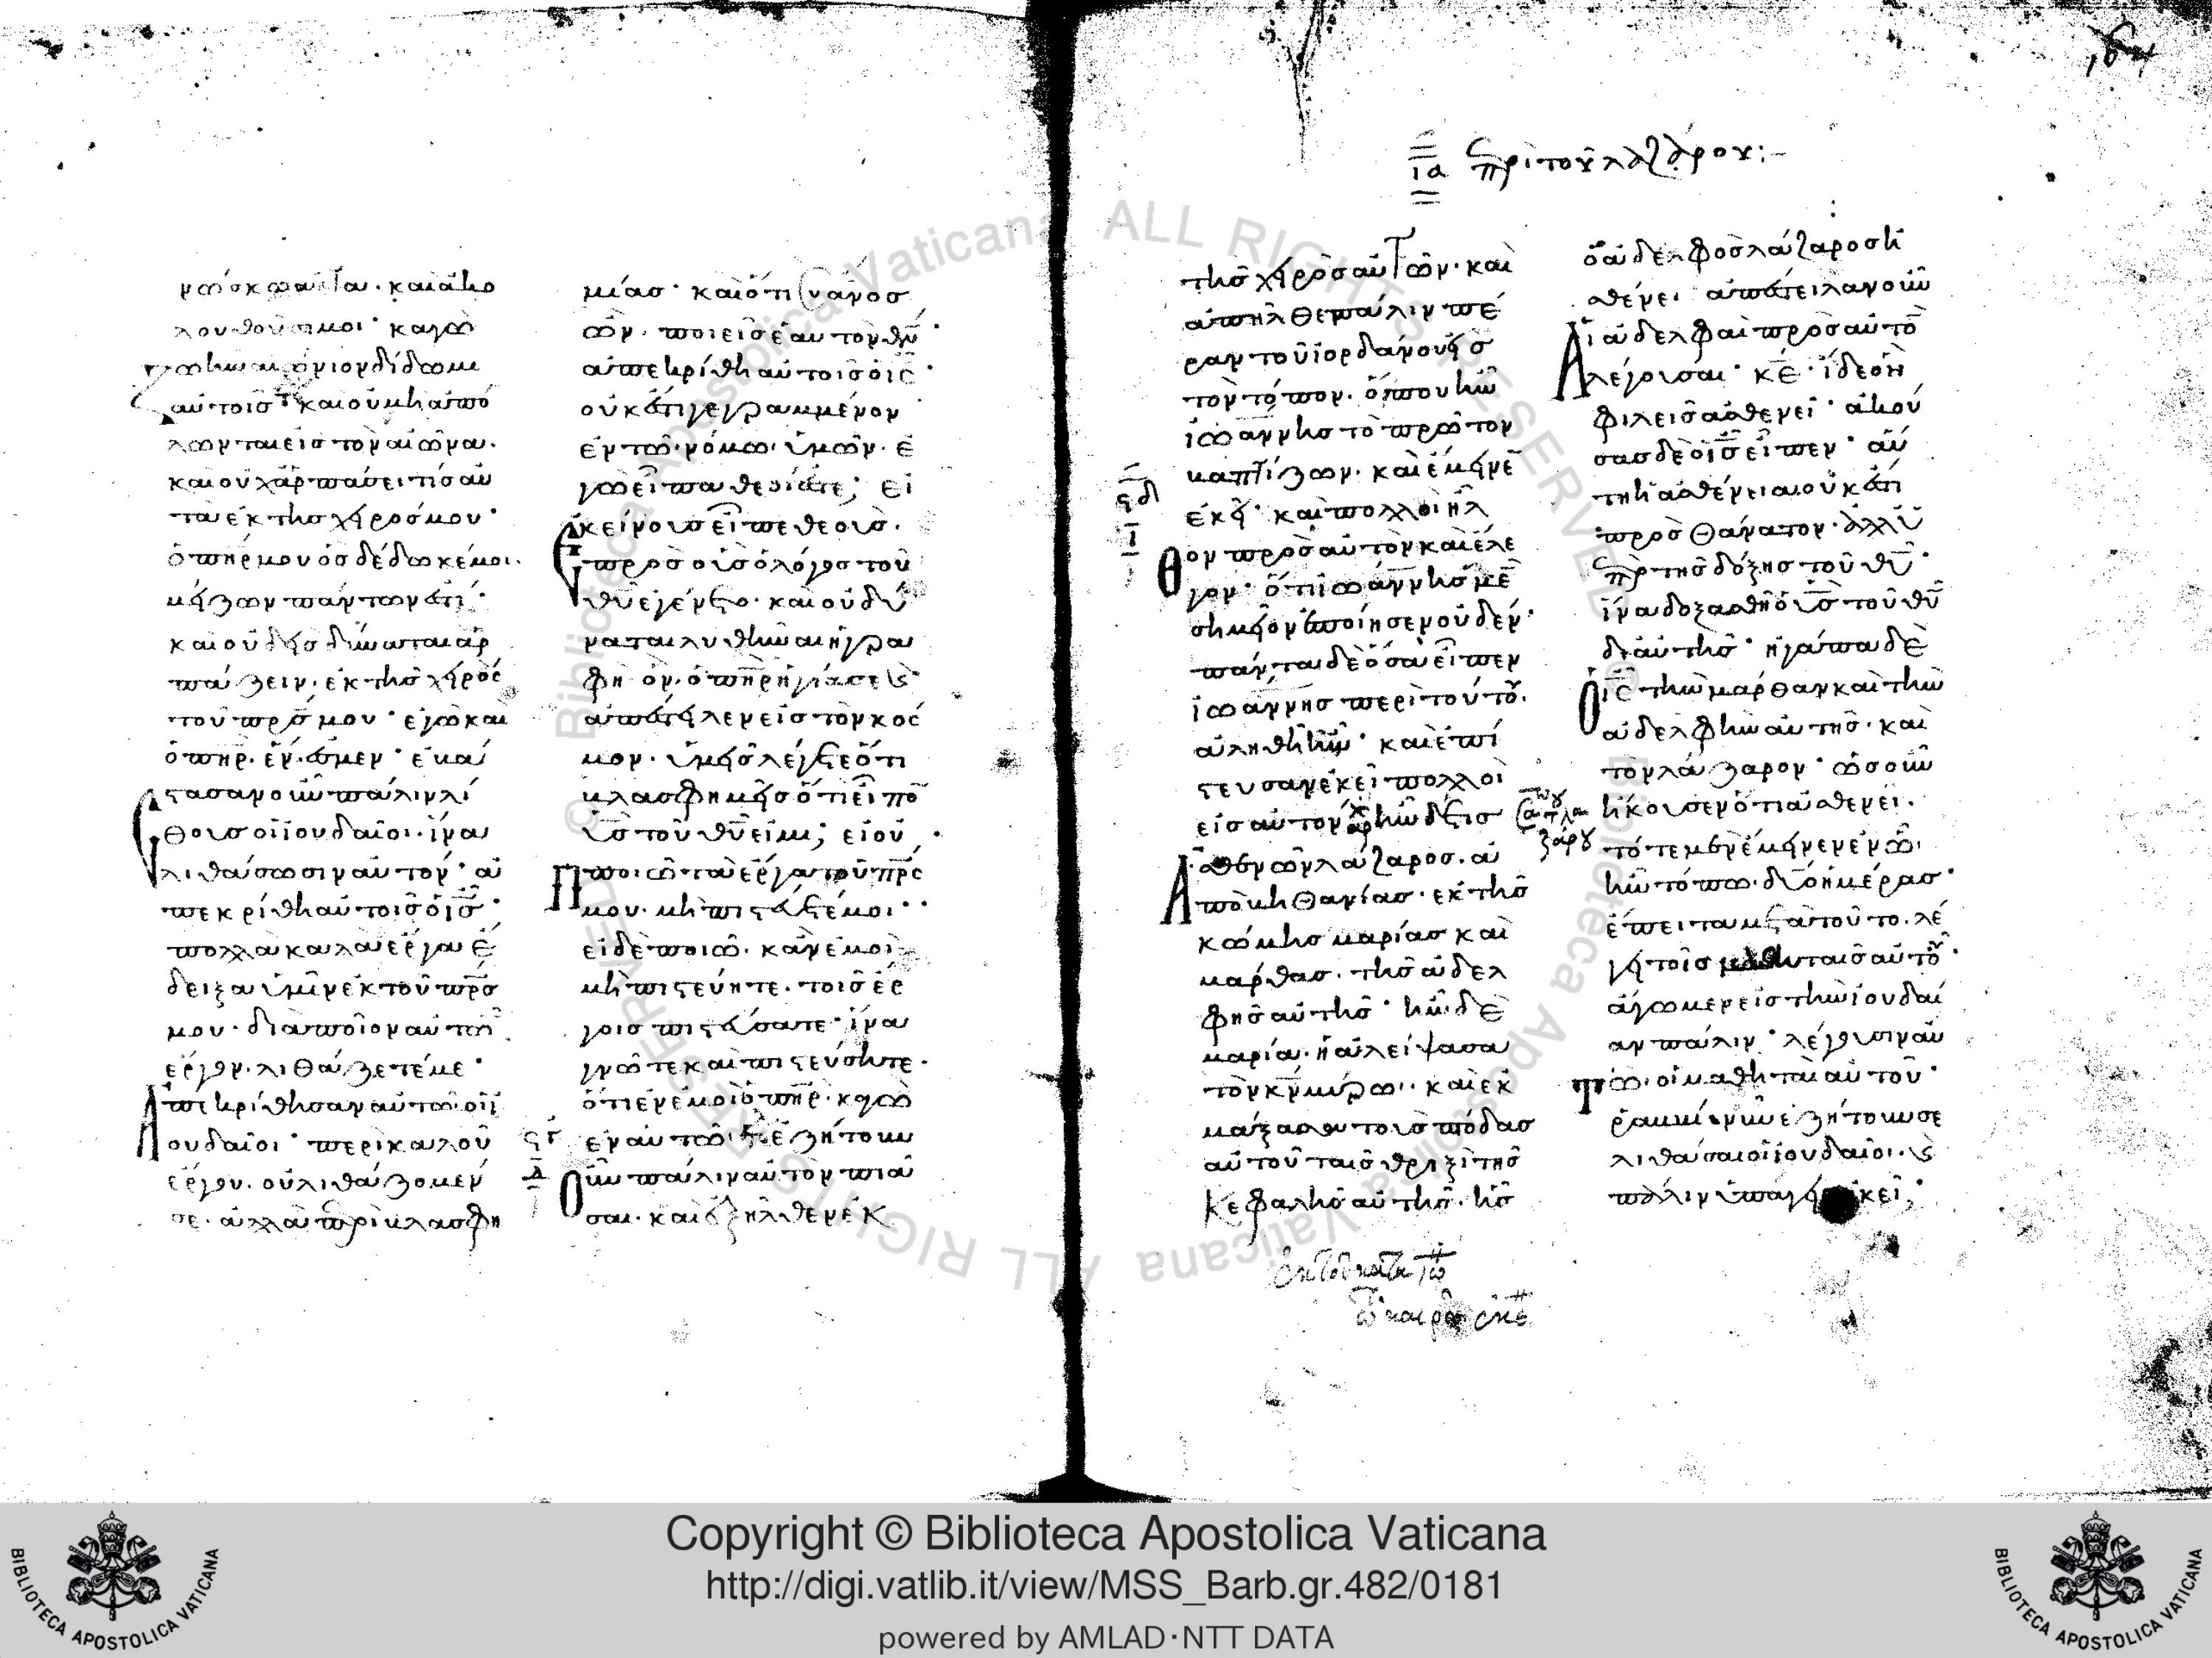 γινώσκω αὐτά. καὶ ἀκο
λουθοῦσι μοι· καγὼ
ζωὴν αἰώνιον δίδωμι
αὐτοῖς· καὶ οὐ μὴ ἀπό
λωνται εἰς τὸν αἰῶνα.
καὶ οὐχ ἁρπάσει τίς αὐ
τὰ ἐκ τῆς χειρός μου·
ὁ πηρ μου ὃς δέδωκέ μοι.
μείζων πάντων ἐστί·
καὶ οὐδεὶς δύναται ἁρ
πάζειν. ἐκ τῆς χειρὸς
τοῦ πρς μου· ἐγὼ καὶ
ὁ πηρ. ἕν ἐσμεν· ἐβά
στασαν οὖν πάλιν λί
θους οἱ ἰουδαῖοι. ἵνα
λιθάσωσιν αὐτόν· ἀ
πεκρίθη αὐτοῖς ὁ ις·
πολλὰ καλὰ ἔργα ἔ
δειξα ὑμῖν ἐκ τοῦ πρς
μου· διὰ ποῖον αὐτῶν
ἔργον. λιθάζετέ με·
ἀπεκρίθησαν αὐτῶ οἱ ἰ
ουδαῖοι· περὶ καλοῦ
ἔργου. οὐ λιθάζομέν
σε. ἀλλὰ περὶ βλασφη
μίας· καὶ ὅτι σὺ ἄνος
ὤν. ποιεῖς ἑαυτὸν θν·
ἀπεκρίθη αὐτοῖς ὁ ις·
οὐκ ἔστι γεγραμμένον
ἐν τῶ νόμω ὑμῶν. ἐ
γὼ εἶπα θεοί ἐστε; εἰ
ἐκείνους εἶπε θεούς.
πρὸς οὓς ὁ λόγος τοῦ
θυ ἐγένετο. καὶ οὐ δύ
ναται λυθῆναι ἡ γρα
φὴ ὃν. ὁ πηρ ἡγίασε κ
ἀπέστειλεν εἰς τὸν κόσ
μον. ὑμεῖς λέγετε ὅτι
βλασφημεῖς ὅτι εἶπον
υς τοῦ θυ εἰμι; εἰ οὐ
ποιῶ τὰ ἔργα τοῦ πρς
μου. μὴ πιστεύετέ μοι·
εἰ δὲ ποιῶ. κἂν ἐμοὶ
μὴ πιστεύητε. τοῖς ἔρ
γοις πιστεύσατε· ἵνα
γνῶτε καὶ πιστεύσητε.
ὅτι ἐν ἐμοὶ ὁ πηρ. καγὼ
ἐν αὐτῶ· ἐζήτουν
οὖν πάλιν αὐτὸν πιά
σαι. καὶ ἐξῆλθεν ἐκ
ια περὶ τοῦ λαζάρου:–
τῆς χειρὸς αὐτῶν. καὶ
ἀπῆλθε πάλιν πέ
ραν τοῦ ἰορδάνου εἰς
τὸν τόπον. ὅπου ἦν
ἰωάννης τὸ πρῶτον
βαπτίζων. καὶ ἔμεινεν
ἐκεῖ· καὶ πολλοὶ ἦλ
θον πρὸς αὐτὸν καὶ ἔλε
γον· ὅτι ἰωάννης μὲν
σημεῖον ἐποίησεν οὐδέν·
πάντα δὲ ὅσα εἶπεν
ἰωάννης περὶ τούτου.
ἀληθῆ ἦν· καὶ ἐπί
στευσαν ἐκεῖ πολλοὶ
εἰς αὐτόν· ἦν δέ τις
ἀσθενῶν λάζαρος. ἀ
πὸ βηθανίας. ἐκ τῆς
κώμης μαρίας καὶ
μάρθας. τῆς ἀδελ
φῆς αὐτῆς· ἦν δὲ
μαρία. ἡ ἀλείψασα
τὸν κν μύρω. καὶ ἐκ
μάξασα τοὺς πόδας
αὐτοῦ ταῖς θριξὶ τῆς
κεφαλῆς αὐτῆς. ἧς
ὁ ἀδελφὸς λάζαρος ἠ
σθένει ἀπέστειλαν οὖν
αἱ ἀδελφαὶ πρὸς αὐτὸν
λέγουσαι· κε. ἴδε ὃν
φιλεῖς ἀσθενεῖ· ἀκού
σας δὲ ὁ ις εἶπεν· αὕ
τη ἡ ἀσθένεια οὐκ ἔστι
πρὸς θάνατον. ἀλλ' ὑ
πὲρ τῆς δόξης τοῦ θυ·
ἵνα δοξασθῆ ὁ υς τοῦ θυ
δι' αὐτῆς· ἠγάπα δὲ
ὁ ις τὴν μάρθαν καὶ τὴν
ἀδελφὴν αὐτῆς. καὶ
τὸν λάζαρον· ὡς οὖν
ἤκουσεν ὅτι ἀσθενεῖ.
τότε μὲν ἔμεινεν ἐν ὧ
ἦν τόπω. δύο ἡμέρας·
ἔπειτα μετὰ τοῦτο. λέ
γει τοῖς μαθηταῖς αὐτοῦ·
ἄγωμεν εἰς τὴν ἰουδαί
αν πάλιν· λέγουσιν αὐ
τῶ. οἱ μαθηταὶ αὐτοῦ·
ῥαββί. νῦν ἐζήτουν σε
λιθάσαι οἱ ἰουδαῖοι. κ
πάλιν ὑπάγεις ἐκεῖ;
Copyright © Biblioteca Apostolica Vaticana
http://digi.vatlib.it/view/MSS_Barb.gr.482/0181
powered by AMLAD·NTT DATA
BIBLIOTECA APOSTOLICA VATICANA
BIBLIOTECA APOSTOLICA VATICANA